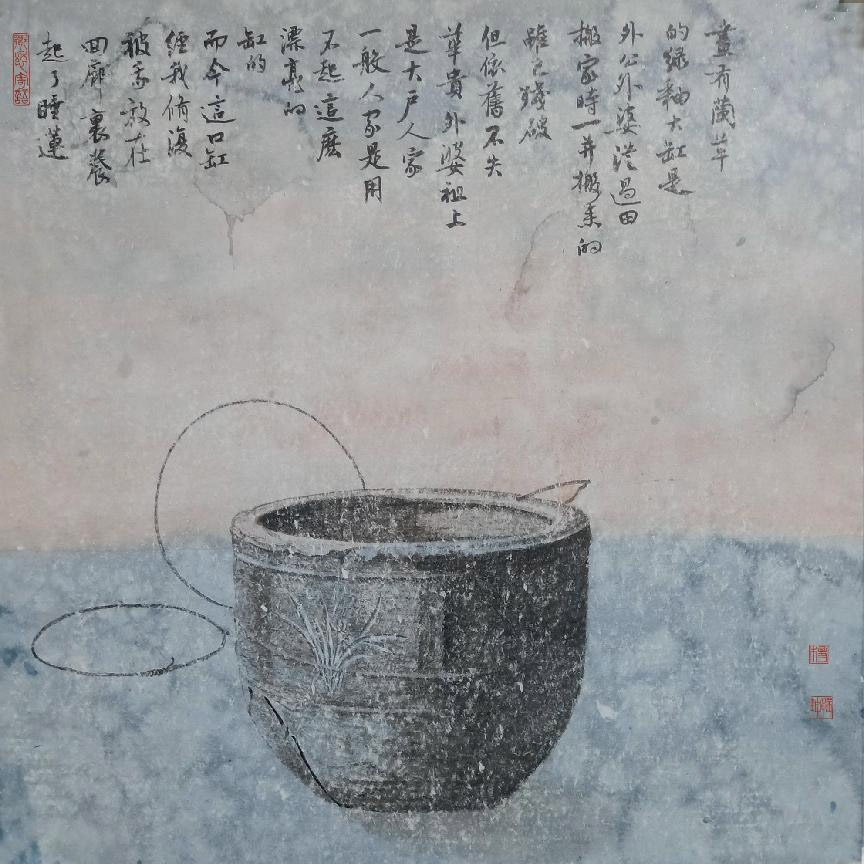 畫有蘭草
的綠釉大缸是
外公外婆從過田
搬家時一并搬來的
雖已殘破
但依舊不失
華貴外婆祖上
是大戶人家
一般人家是用
不起這麽
漂亮的
缸的
而今這口缸
經我脩復
被我放在
回廊裏養
起了睡蓮